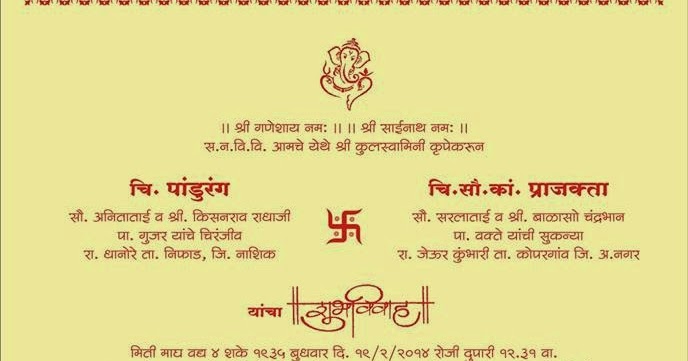 ।। श्री गणेशाय नम: ।। ।। श्री साईनाथ नम: ।।
स.न.वि.वि. आमचे येथे श्री कुलस्वामिनी कृपेकरून
चि. पांडुरंग
सौ. अनिताताई व श्री. किसनराव राधाजी
पा. गुजर यांचे चिरंजीव
रा. धानोरे ता. निफाड, जि. नाशिक
चि.सौ.कां. प्राजक्ता
सौ. सरलाताई व श्री. बाळासो चंद्रभान
पा. वक्ते यांची सुकन्या
रा. जेऊर कुंभारी ता. कोपरगांव जि. अ.नगर
यांचा ॥शुभविवाह॥
मिती माघ वद्य ४ शके १९३५ बुधवार दि. १९/२/२०१४ रोजी दुपारी १२.३१ वा.